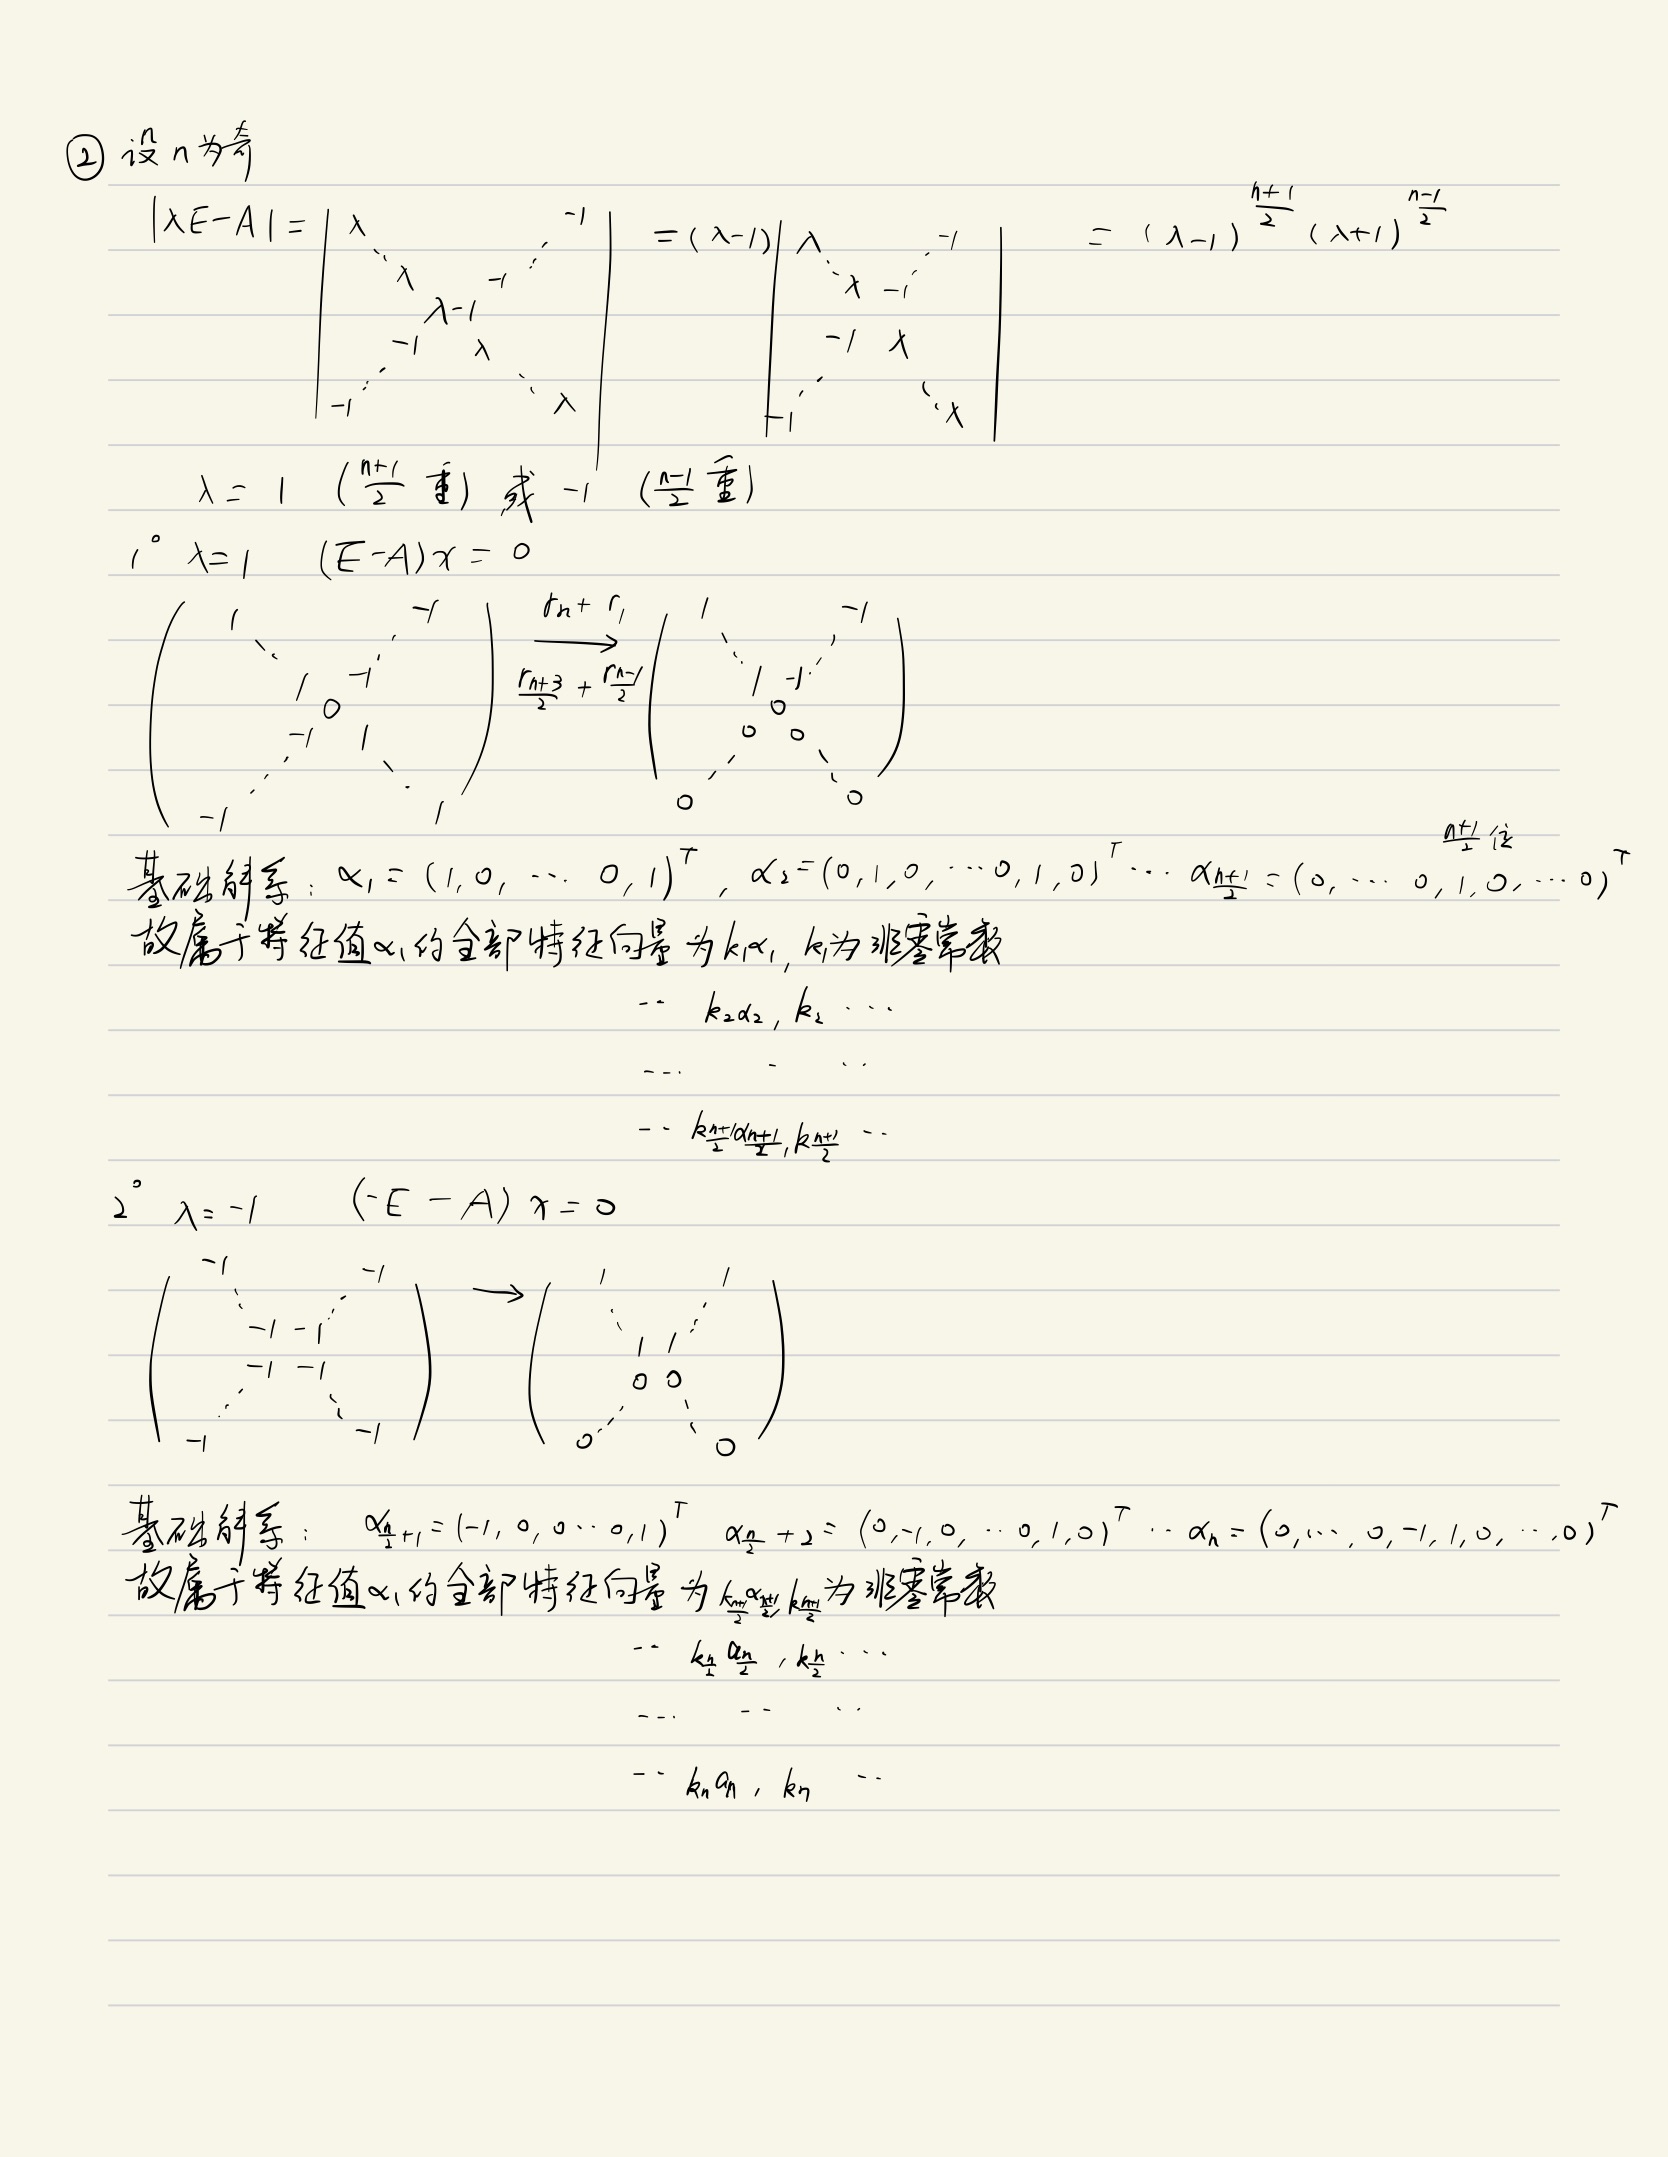 ② 设n为奇
|λE-A| = | λ -1 ⋱ ⋰ λ -1 λ-1 -1 λ ⋰ ⋱ -1 λ | = (λ-1) | λ -1 ⋱ ⋰ λ -1 -1 λ ⋰ ⋱ -1 λ | = (λ-1)^{\frac{n+1}{2}} (λ+1)^{\frac{n-1}{2}}
λ = 1 (\frac{n+1}{2} 重) 或 -1 (\frac{n-1}{2} 重)
1° λ=1 (E-A)x = 0
( 1 -1 ⋱ ⋰ 1 -1 0 -1 1 ⋰ ⋱ -1 1 ) \xrightarrow[r_{\frac{n+3}{2}} + r_{\frac{n-1}{2}}]{r_n + r_1} ( 1 -1 ⋱ ⋰ 1 -1 0 0 0 ⋰ ⋱ 0 0 )
基础解系: α₁ = (1, 0, … 0, 1)^T , α₂ = (0, 1, 0, … 0, 1, 0)^T … α_{\frac{n+1}{2}} = (0, … 0, 1, 0, … 0)^T \frac{n+1}{2} 位
故属于特征值α₁的全部特征向量为k₁α₁, k₁为非零常数
-- k₂α₂, k₂ …
--- - ··
-- k_{\frac{n+1}{2}}α_{\frac{n+1}{2}}, k_{\frac{n+1}{2}} --
2° λ = -1 (-E - A) x = 0
( -1 -1 ⋱ ⋰ -1 -1 -1 -1 ⋰ ⋱ -1 -1 ) → ( 1 1 ⋱ ⋰ 1 1 0 0 ⋰ ⋱ 0 0 )
基础解系: α_{\frac{n}{2}+1} = (-1, 0, 0 … 0, 1)^T α_{\frac{n}{2}} + 2 = (0, -1, 0, … 0, 1, 0)^T … α_n = (0, …, 0, -1, 1, 0, …, 0)^T
故属于特征值α₁的全部特征向量为 为非零常数
-- k_{\frac{n}{2}} α_{\frac{n}{2}} , k_{\frac{n}{2}} …
--- -- ··
-- k_n α_n , k_n --